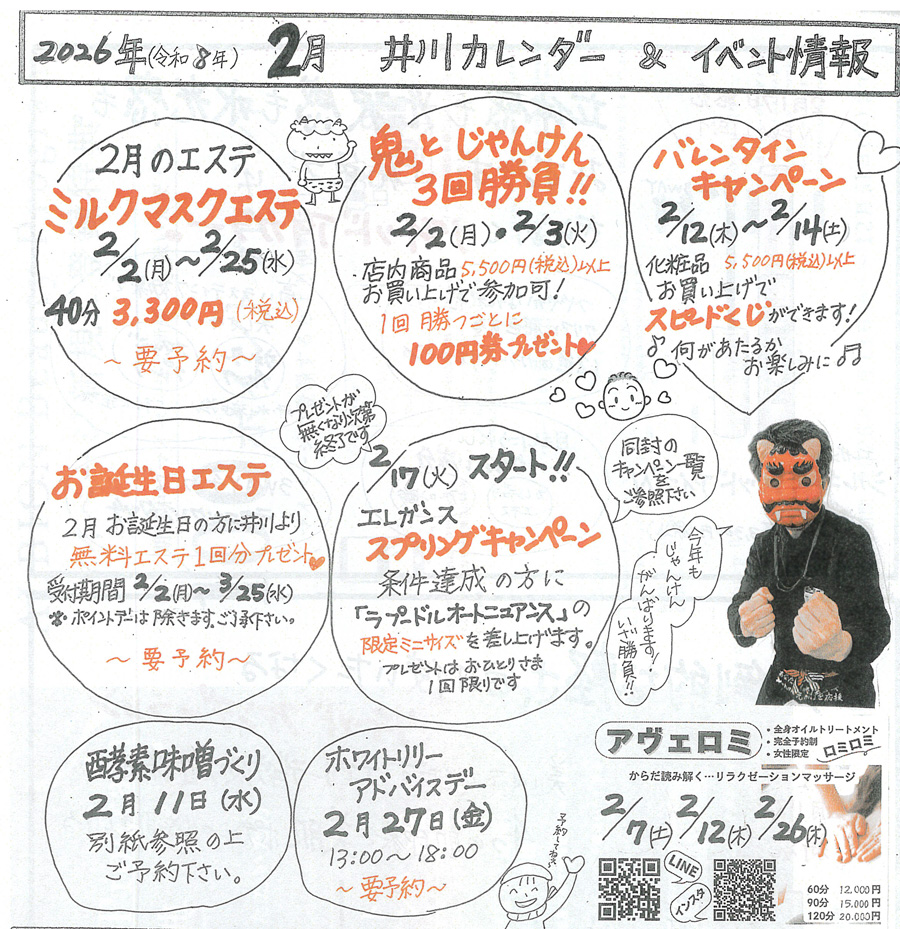 2026年(令和8年) 2月 井川カレンダー & イベント情報
2月のエステ
ミルクマスクエステ
2/2(月)～2/25(水)
40分 3,300円(税込)
～要予約～
鬼とじゃんけん
3回勝負!!
2/2(月)・2/3(火)
店内商品5,500円(税込)以上
お買い上げで参加可!
1回勝つごとに
100円券プレゼント
バレンタイン
キャンペーン
2/12(木)～2/14(土)
化粧品 5,500円(税込)以上
お買い上げで
スピードくじができます!
♪何があたるか
お楽しみに♫
お誕生日エステ
2月お誕生日の方に井川より
無料エステ1回分プレゼント
受付期間 2/2(月)～3/25(水)
※ポイントデーは除きます。ご了承下さい。
～要予約～
プレゼントが
無くなり次第
終了です
2/17(火)スタート!!
エレガンス
スプリングキャンペーン
条件達成の方に
「ラプードルオートニュアンス」の
限定ミニサイズを差し上げます。
プレゼントはおひとりさま
1回限りです
同封の
キャンペーン一覧
を
ご参照下さい
今年も
じゃんけん
がんばります!
いざ勝負!!
酵素味噌づくり
2月11日(水)
別紙参照の上
ご予約下さい。
ホワイトリリー
アドバイスデー
2月27日(金)
13:00～18:00
～要予約～
予約してね
アヴェロミ
・全身オイルトリートメント
・完全予約制
・女性限定
ロミロミ
からだ読み解く…リラクゼーションマッサージ
2/7(土) 2/12(木) 2/26(木)
LINE
インスタ
60分 12,000円
90分 15,000円
120分 20,000円